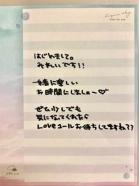 はじめまして。
みれいです!!
一緒に楽しい
お時間にしましょ〜♡
ぜひ少しでも
気になってくれたら
Loveコールお待ちしてますね??